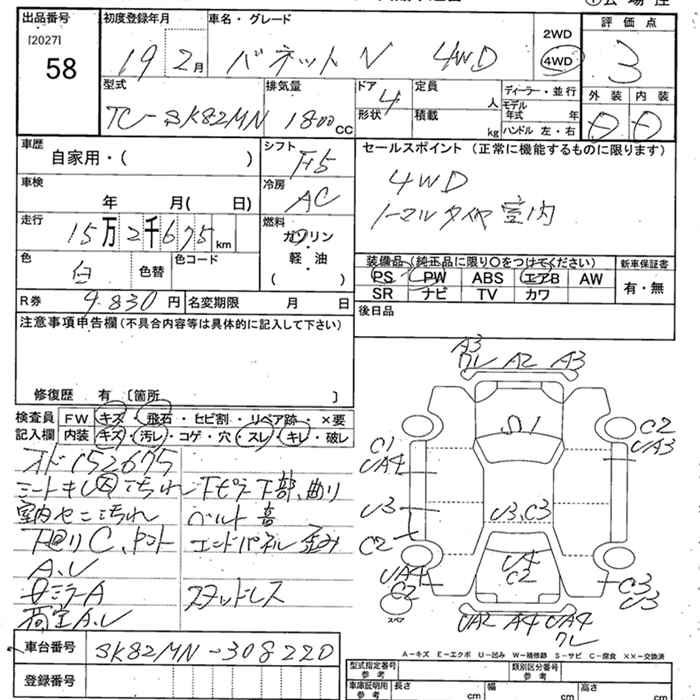 出品番号 初度登録年月 車名・グレード 2WD 評価点
[2027] 58 19 2月 バネット V 4WD 4WD 3
型式 排気量 ドア 4 定員 人 ディーラー・並行 外装 内装
TC-SK82MN 1800cc 形状 積載 kg モデル年式 年 ハンドル 左・右 D D
車歴 自家用・( ) シフト F5 セールスポイント(正常に機能するものに限ります)
車検 年 月( 日) 冷房 AC 4WD
走行 15万2千675km 燃料 ガソリン ノーマルタイヤ室内
軽・油
( )
色 白 色替 色コード 装備品(純正品に限り〇をつけてください) 新車保証書
PS PW ABS エアB AW 有・無
SR ナビ TV カワ
R券 9.830円 名変期限 月 日 後日品
注意事項申告欄(不具合内容等は具体的に記入して下さい)
修復歴 有 〔箇所 〕
検査員 FW キズ・飛石・セビ割・リペア跡・×要
記入欄 内装 キズ・汚レ・コゲ・穴・スレ・キレ・破レ
オド152675
シートキレ大 汚れ 下ピラー下部、曲り
室内セニ汚れ ベルト音
下廻りC、ヤット エンドパネル歪み
A.U
ミラーA スタッドレス
荷室A.U
A3 ワレ A2 A3
S1
C1 UA4
C2 UA3
U3
U3、C3
C2
U4 C2
UA4 C2
C3 U3
スペア
UA2 A4 UA4 ワレ
A-キズ E-エクボ U-凹み W-補修跡 S-サビ C-腐食 XX-交換済
車台番号 SK82MN-308220
登録番号
型式指定番号 参考 類別区分番号 参考
車庫証明用 参考 長さ cm 幅 cm 高さ cm